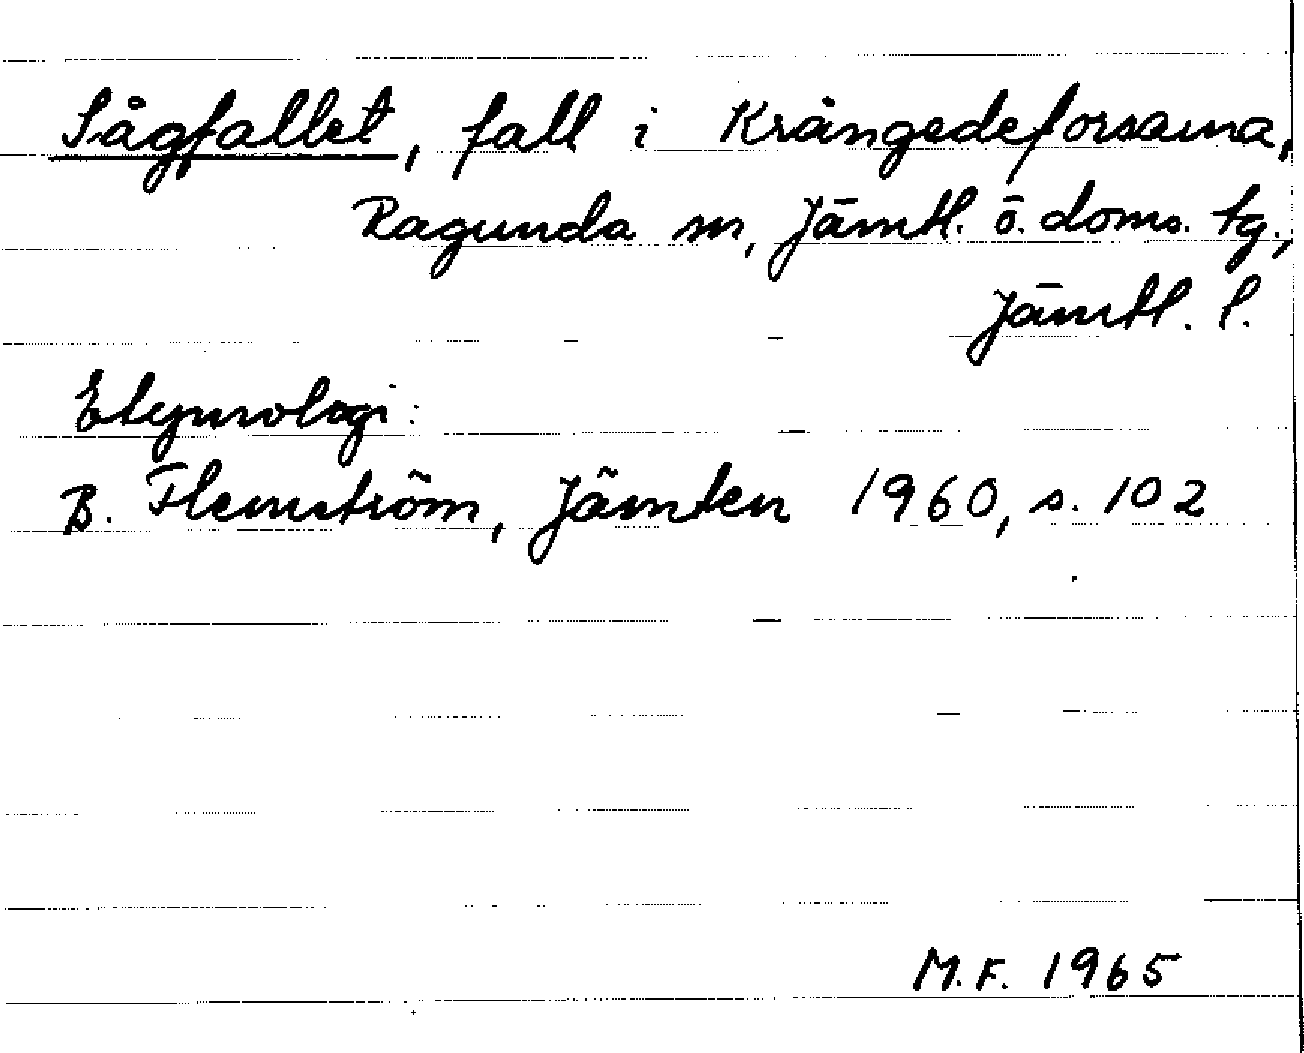 Sågfallet, fall i Krångedeforsarna,
Ragunda sn, Jämtl. ö. doms. tg.,
Jämtl. l.
Etymologi:
B. Flemström, Jämten 1960, s. 102
M.F. 1965